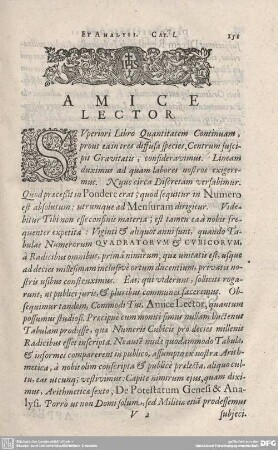 ET ANALYSI. CAP. I. 151
AMICE
LECTOR
SVperiori Libro Quantitatem Continuam,
prout ea in tres diffusa species, Centrum susci-
pit Gravitatis, consideravimus. Lineam
duximus ad quam labores nostros exigere-
mus. Nunc circa Discretam versabimur.
Quod præcessit in Pondere erat; quod sequitur in Numero
est absolutum: utrumque ad Mensuram dirigitur. Vi-
debitur Tibi non esse
frequenter expetita: Viginti & aliquot anni sunt, quando Ta-
bulas Numerorum QVADRATORVM & CVBICORVM,
à Radicibus omnibus, primâ nimirum, quæ unitatis est, usque
ad decies millesimam inclusivè ortum ducentium, privatis no-
stris usibus construximus. Eas, qui viderunt, solicitè roga-
runt, ni publici juris, & plus ultra communes facerem. Ob-
sequimur tandem. Commodo Tui, Amice Lector, quantum
possumus studiosi. Præcipuè cum nullam hactenus
Tabulam prodiisse, quæ Numeris Cubicis pro decies millenis
Radicibus esset inscripta. Ne autem nudæ quodammodo Tabulæ,
& informes comparerent in publico, assumpta ex nostra Arith-
metica, à nobis olim conscripta & publicè prælecta, aliqua cul-
tu, eas utcunq; vestivimus: Capite nimirum ejus, quam dixi-
mus, Arithmeticæ sexto, De Potestatum Genesi & Ana-
lysi. Porrò ut non Domi solum, sed Militiæ etiam prodessemus
V 2 subjeci-